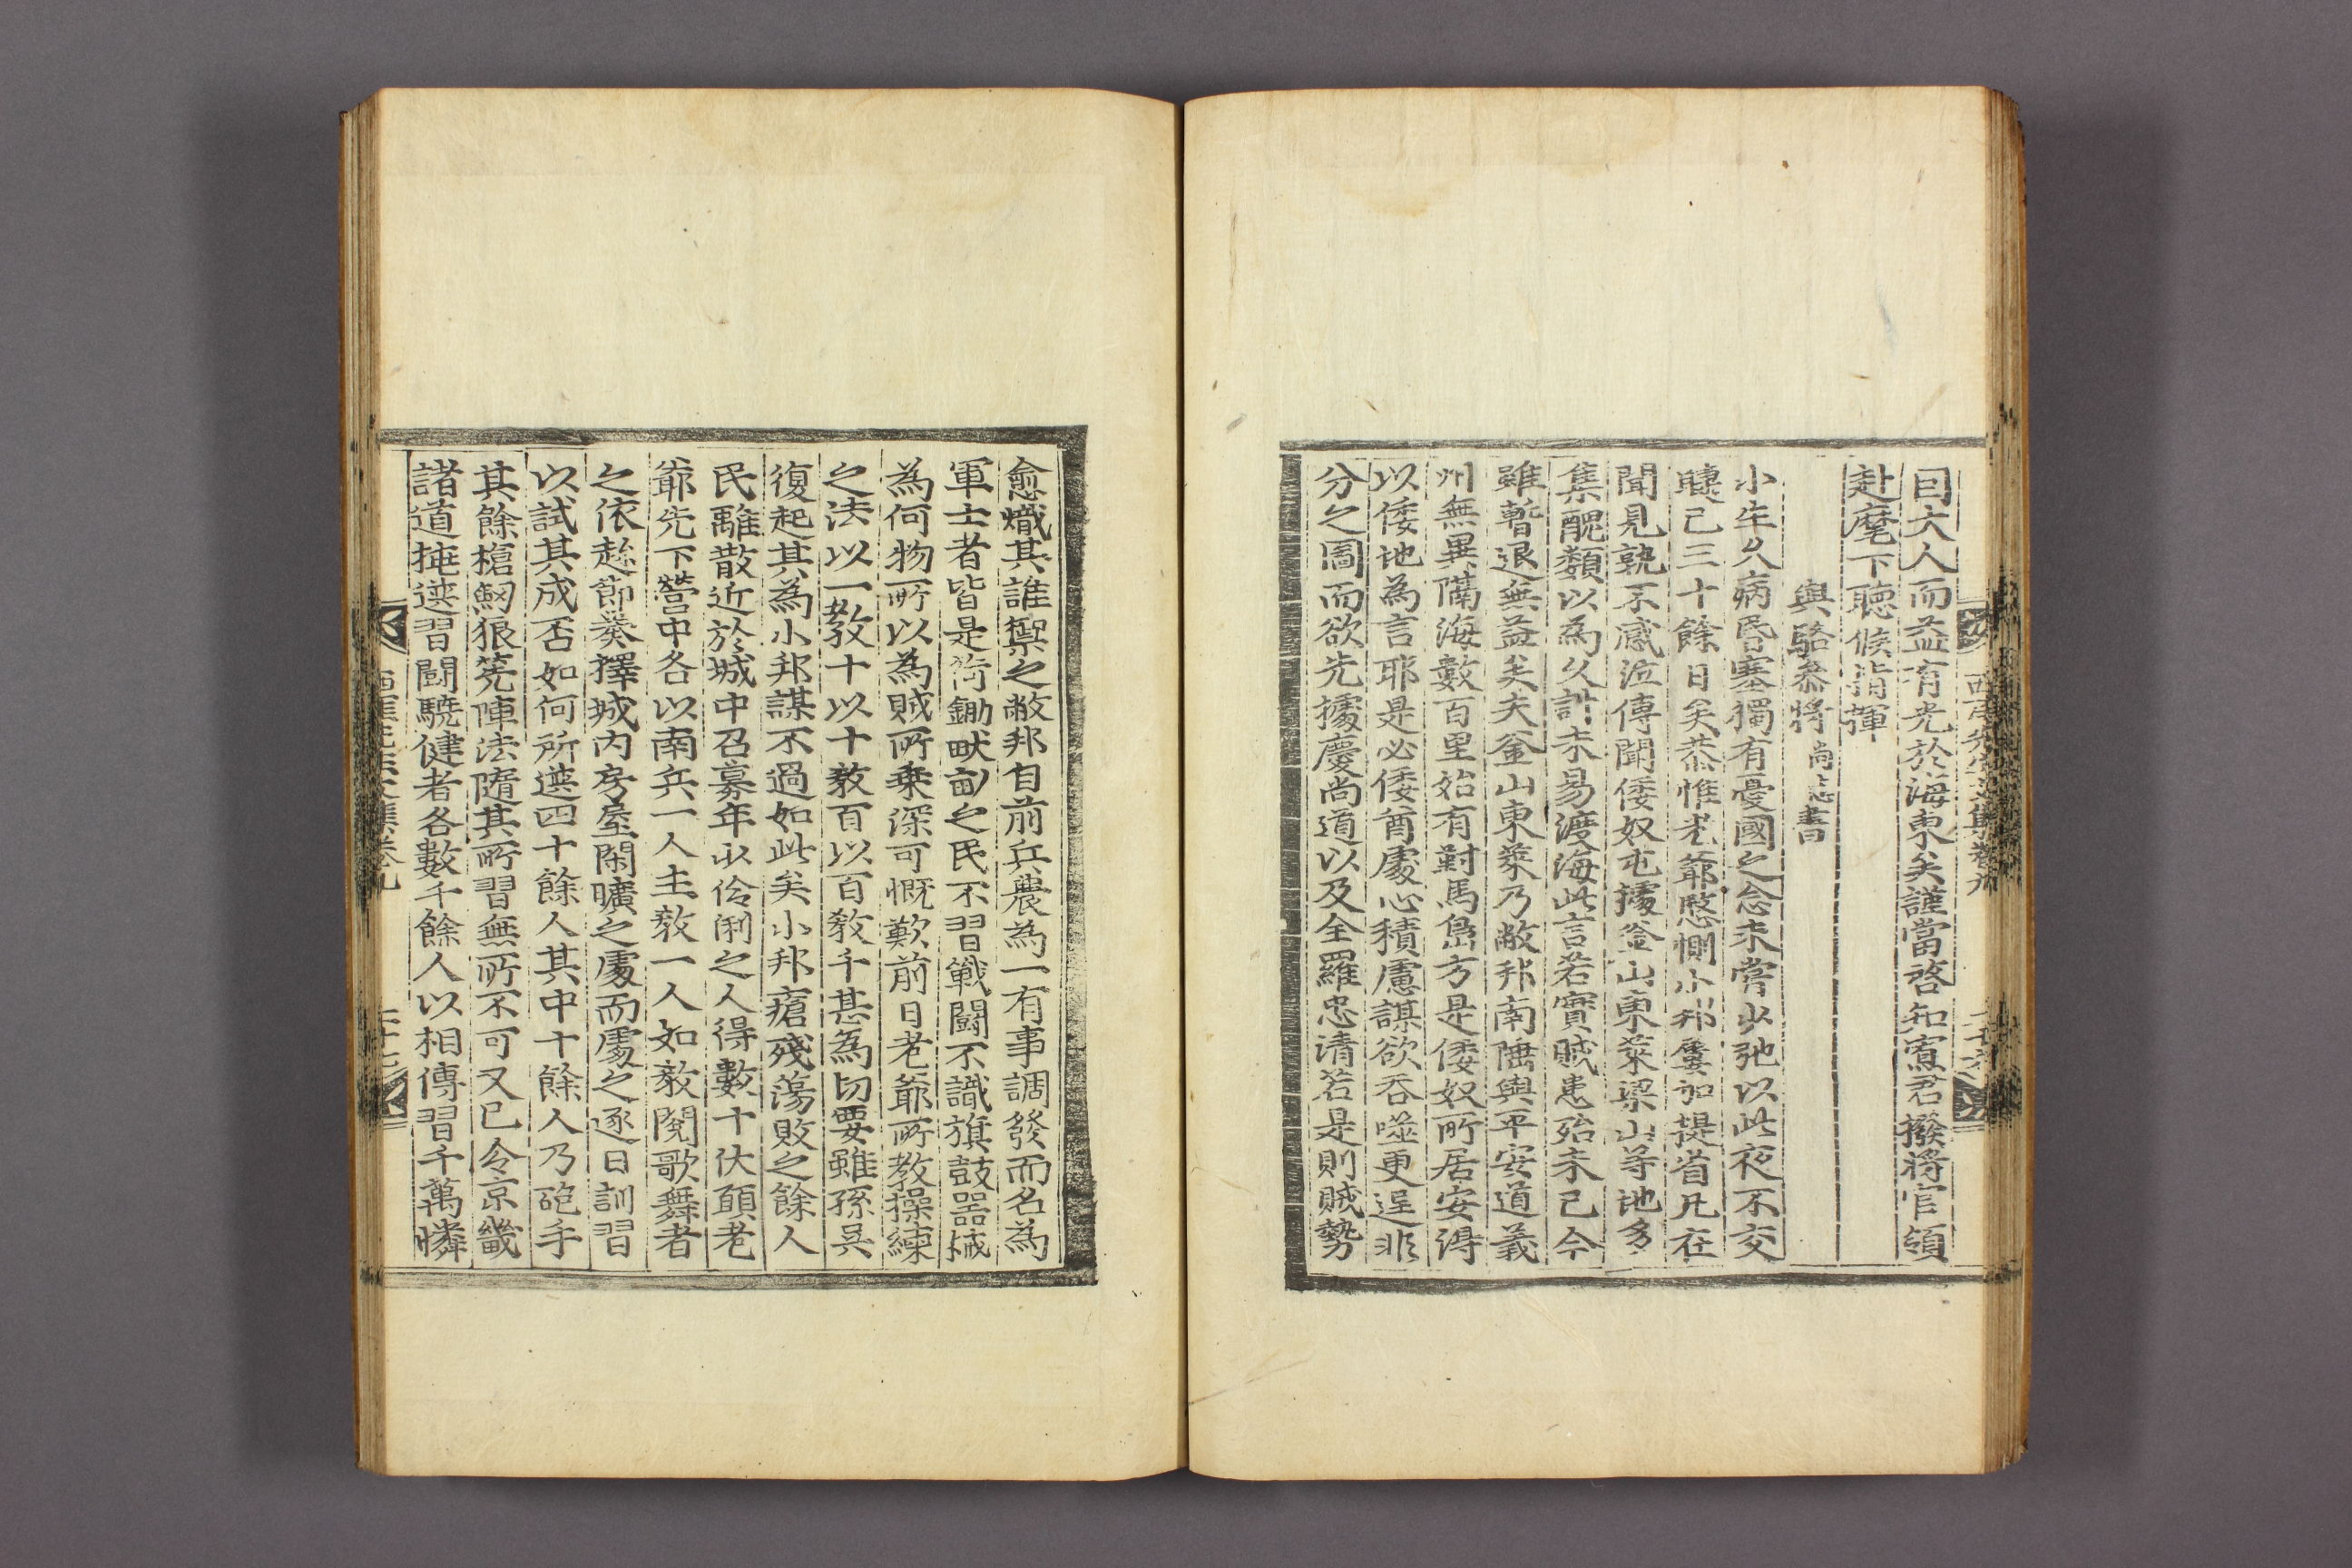 目大人而益有光於海東矣謹當啓知寡君撥將官領
赴麾下聽候指揮
與駱叅將尚志書
小生久病昏塞獨有憂國之念未嘗少弛以此夜不交
睫已三十餘日矣恭惟老爺愍惻小邦屢加提省凡在
聞見孰不感泣傳聞倭奴屯據釜山東萊梁山等地多
集醜類以為久計未易渡海此言若實賊患殆未已今
雖暫退無益矣夫釜山東萊乃敝邦南陲與平安道義
州無異隔海數百里始有對馬島方是倭奴所居安得
以倭地為言耶是必倭酋處心積慮謀欲吞噬更逞非
分之圖而欲先據慶尚道以及全羅忠清若是則賊勢
愈熾其誰禦之敝邦自前兵農為一有事調發而名為
軍士者皆是荷鋤畎畝之民不習戰鬪不識旗鼓器械
為何物所以為賊所乗深可慨歎前日老爺所教操練
之法以一教十以十教百以百教千甚為切要雖孫吳
復起其為小邦謀不過如此矣小邦瘡殘蕩敗之餘人
民離散近於城中召募年少伶俐之人得數十伏願老
爺先下營中各以南兵一人主教一人如教閱歌舞者
之依趁節奏擇城内房屋閑曠之處而處之逐日訓習
以試其成否如何所選四十餘人其中十餘人乃砲手
其餘槍劒狼筅陣法隨其所習無所不可又已令京畿
諸道揀選習鬪驍健者各數千餘人以相傳習千萬憐
西厓先生文集卷九